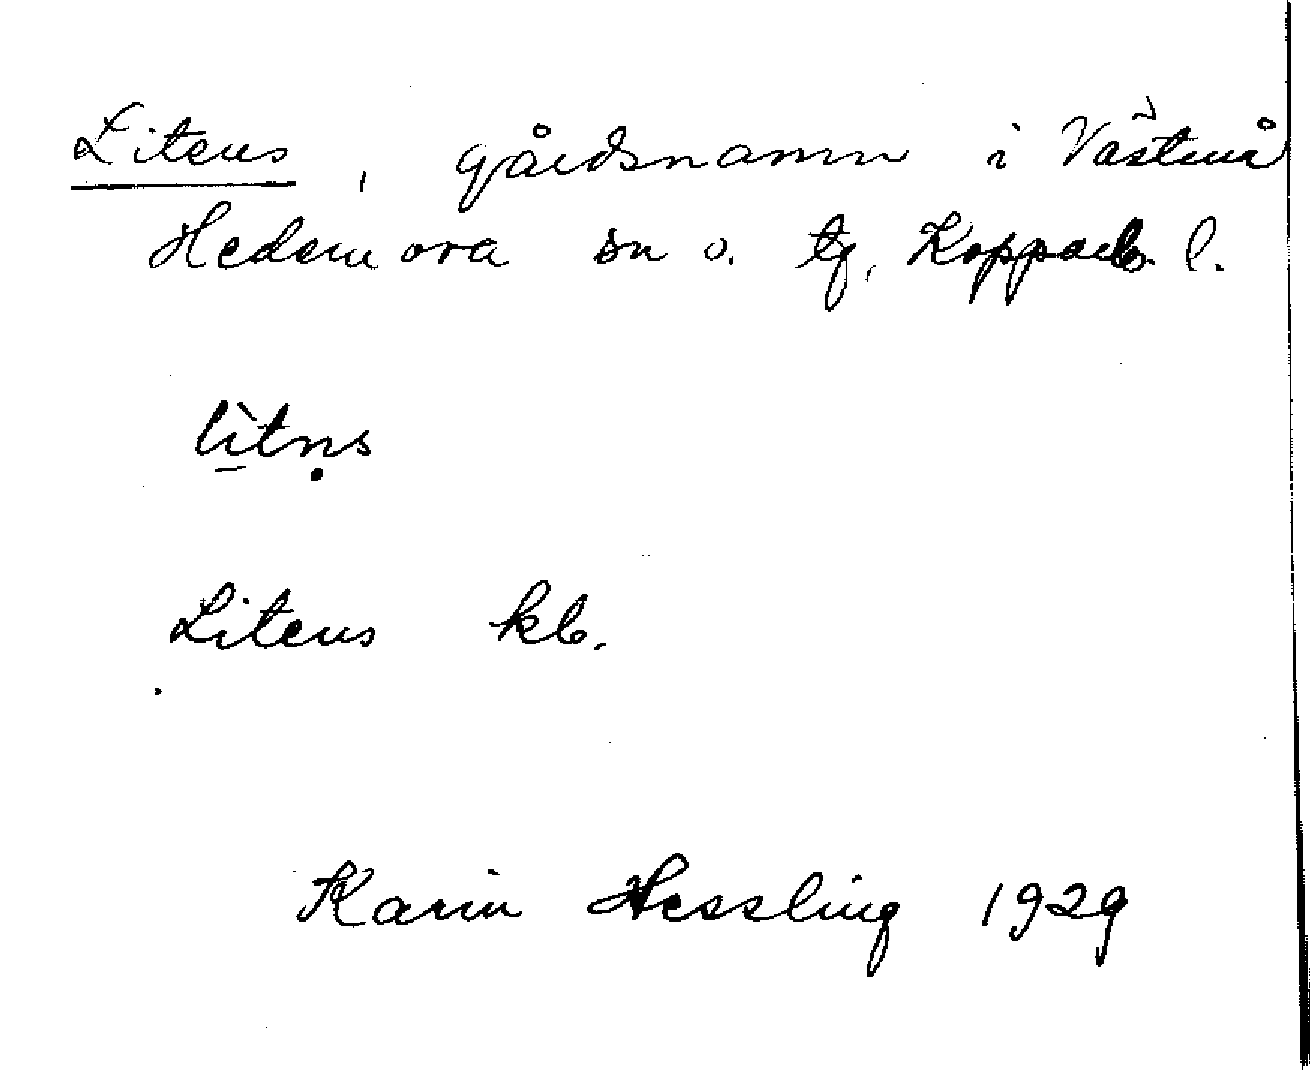 Litens, gårdsnamn i Västmå
Hedemora sn o. tg, Kopparb. l.
lìtn̥s
Litens kb.
Karin Hessling 1929